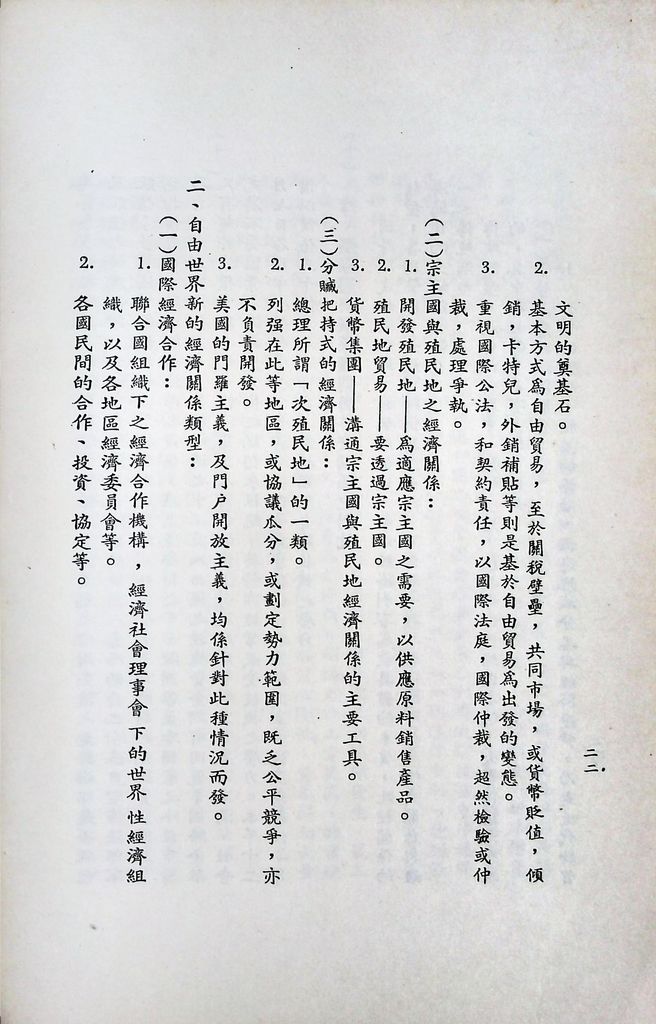 文明的奠基石。
2. 基本方式爲自由貿易，至於關稅壁壘，共同市場，或貨幣貶值，傾
銷，卡特兒，外銷補貼等則是基於自由貿易爲出發的變態。
3. 重視國際公法，和契約責任，以國際法庭，國際仲裁，超然檢驗或仲
裁，處理爭執。
（二）宗主國與殖民地之經濟關係：
1. 開發殖民地——爲適應宗主國之需要，以供應原料銷售產品。
2. 殖民地貿易——要透過宗主國。
3. 貨幣集團——溝通宗主國與殖民地經濟關係的主要工具。
（三）分贓把持式的經濟關係：
1. 總理所謂「次殖民地」的一類。
2. 列强在此等地區，或協議瓜分，或劃定勢力範圍，既乏公平競爭，亦
不負責開發。
3. 美國的門羅主義，及門户開放主義，均係針對此種情況而發。
二、自由世界新的經濟關係類型：
（一）國際經濟合作：
1. 聯合國組織下之經濟合作機構，經濟社會理事會下的世界性經濟組
織，以及各地區經濟委員會等。
2. 各國民間的合作、投資、協定等。
二二